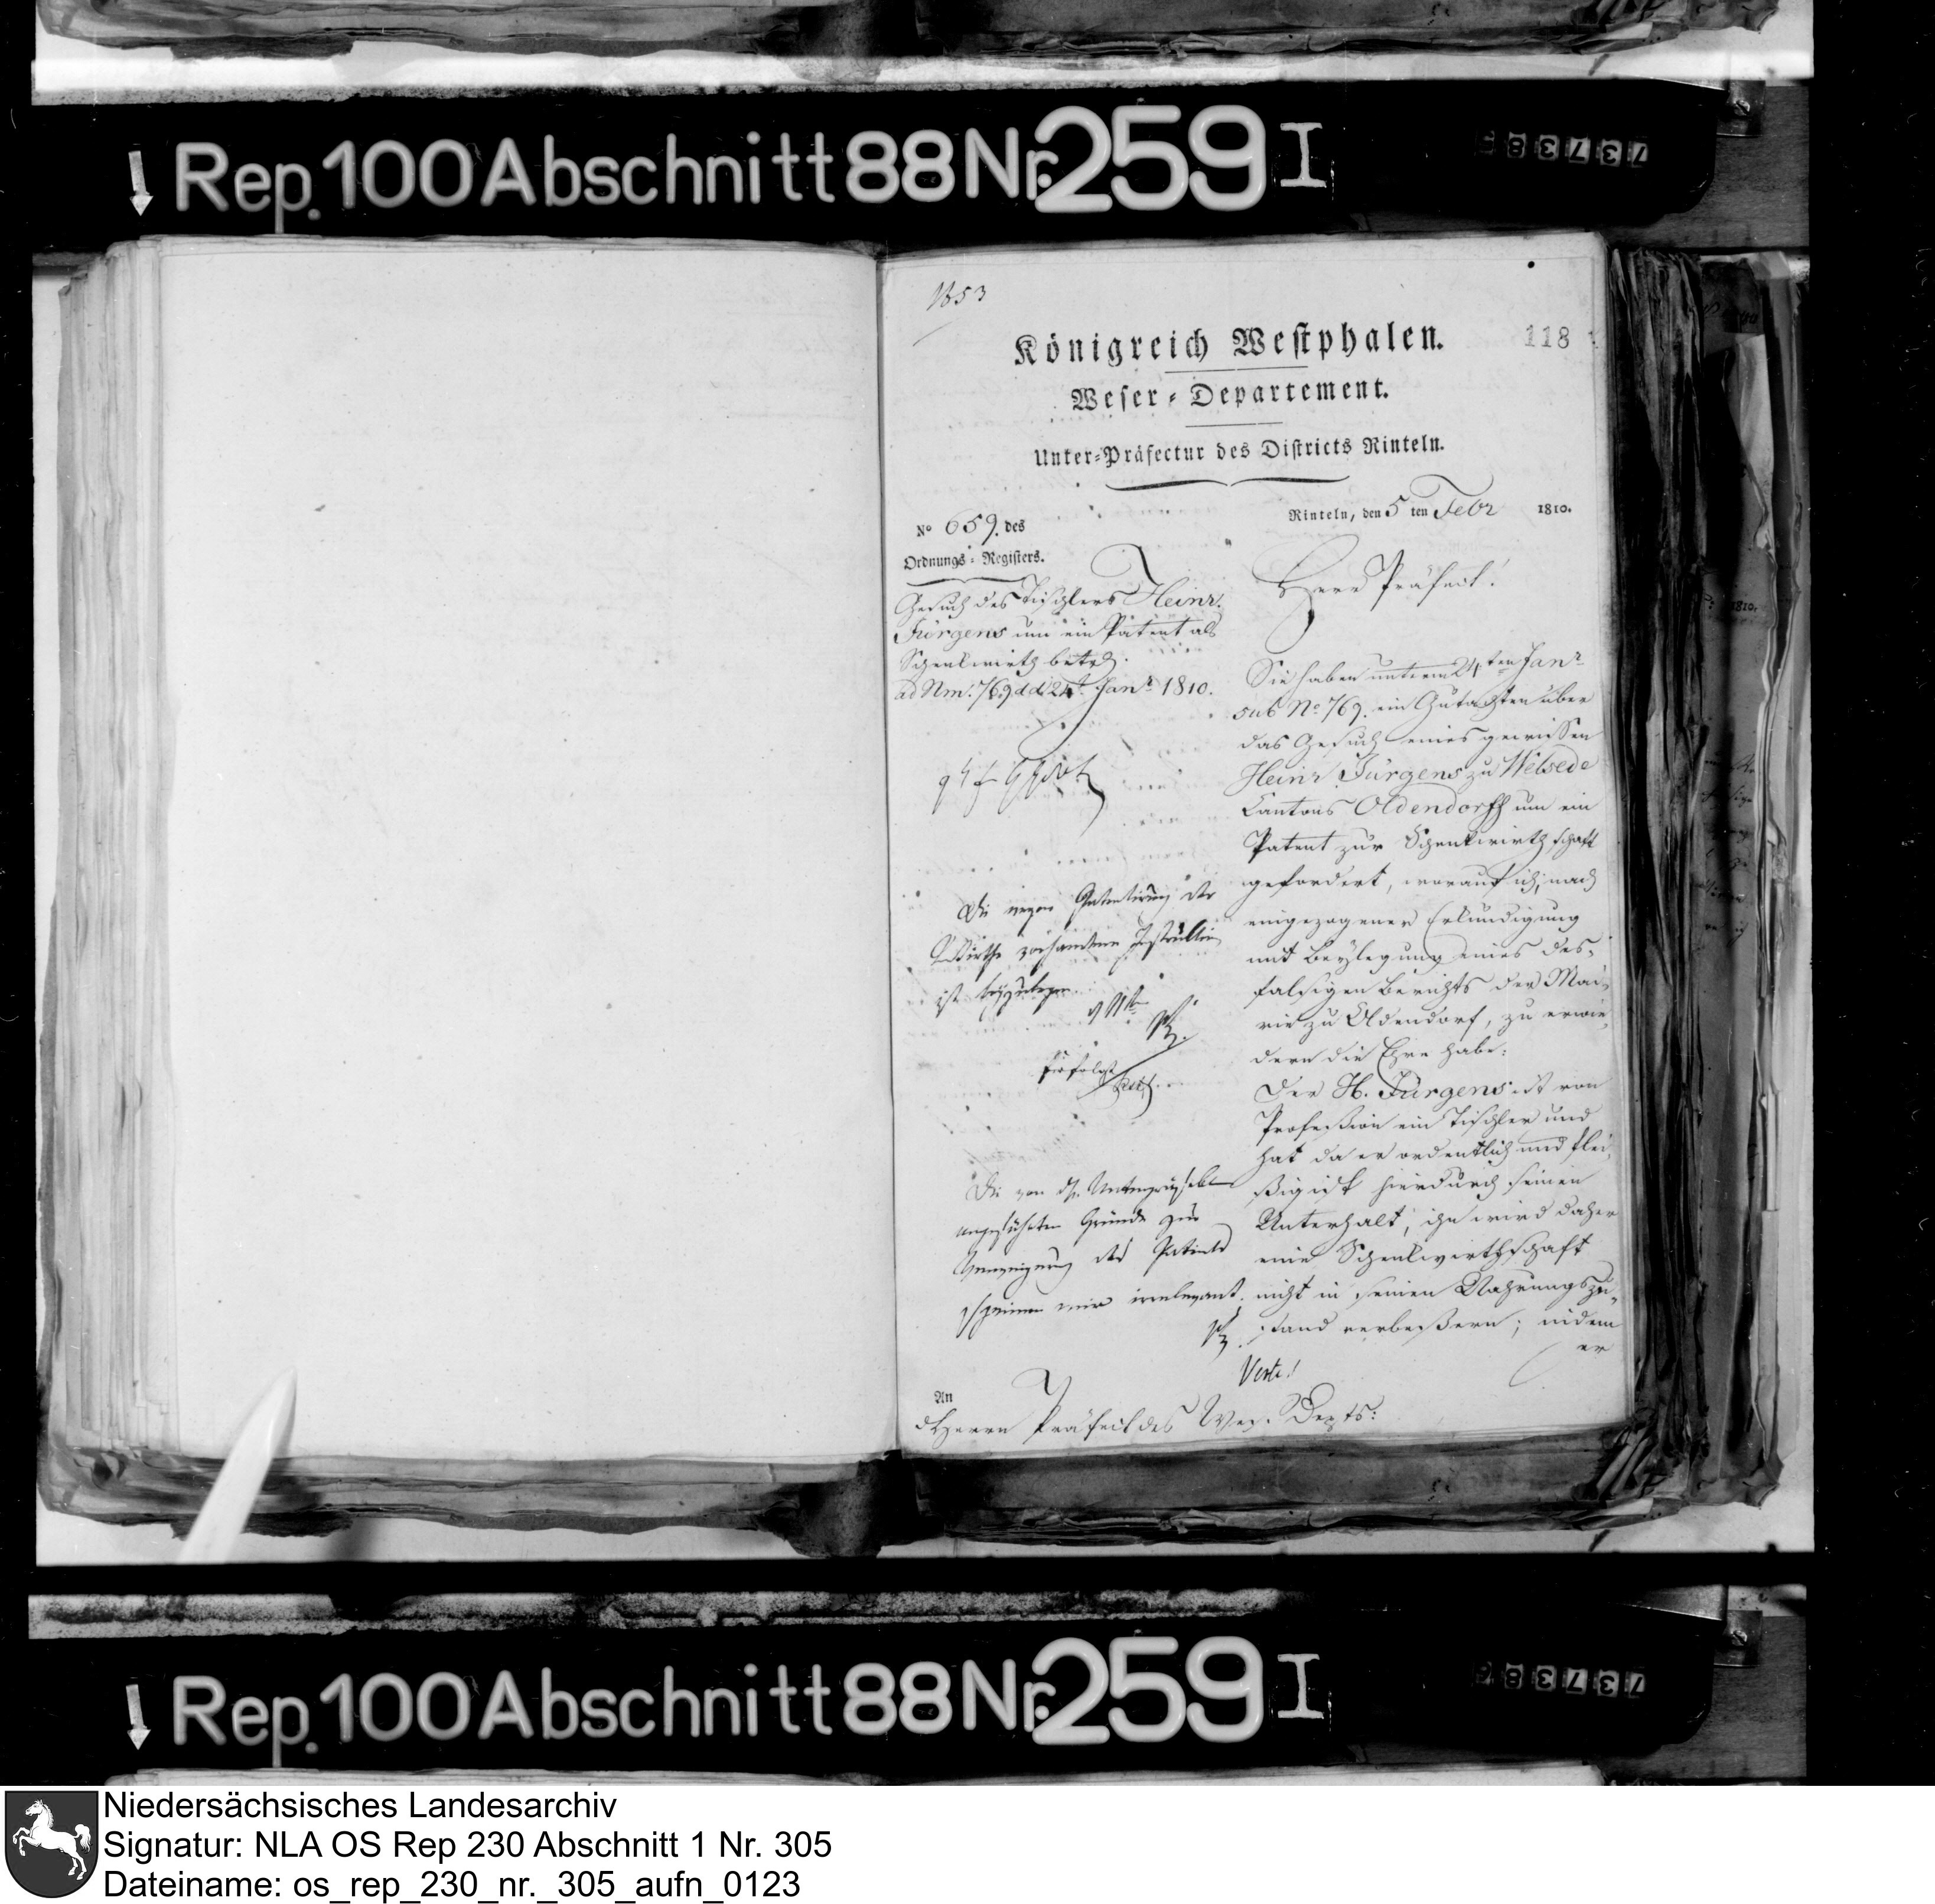 Rep. 100 Abschnitt 88 Nr. 259 I
1853
118
Königreich Westphalen.
Weser-Departement.
Unter-Präfectur des Districts Rinteln.
Rinteln, den 5 ten Febr 1810.
No 659. des
Ordnungs-Registers.
Gesuch des Tischlers Heinr.
Jürgens um ein Patent als
Schenkwirth betrf.
ad Nm. 769 dd 24t. Janr 1810.
Die wegen Patentirung der
Wirthe vorhandene Instruktion
ist beyzulegen.
erfolgt
Die von H. Unterpräfekten
angeführten Gründe zur
Verweigerung des Patents
scheinen mir irrelevant.
Herr Präfect!
Sie haben unterm 24ten Janr
sub No 769. ein Gutachten über
das Gesuch eines gewissen
Heinr. Jürgens zu Welsede
Cantons Oldendorff um ein
Patent zur Schenkwirthschaft
gefordert, worauf ich, nach
eingezogener Erkundigung
mit Beylegung eines des-
falsigen Berichts der Mai-
rie zu Oldendorf, zu erwie-
dern die Ehre habe:
Der H. Jürgens ist von
Profession ein Tischler und
hat da er ordentlich und flei-
ßig ist hierdurch seinen
Unterhalt, ihn wird daher
eine Schenkwirthschaft
nicht in seinen Nahrungszu-
stand verbeßern; indem
er
Verte!
An
d Herrn Präfect des Wes. Depts:
Rep. 100 Abschnitt 88 Nr. 259 I
Niedersächsisches Landesarchiv
Signatur: NLA OS Rep 230 Abschnitt 1 Nr. 305
Dateiname: os_rep_230_nr._305_aufn_0123